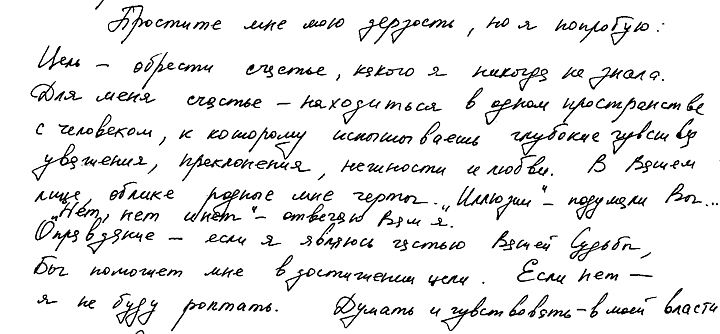 Простите мне мою дерзость, но я попробую:
Цель – обрести счастье, какого я никогда не знала.
Для меня счастье – находиться в одном пространстве
с человеком, к которому испытываешь глубокие чувства
уважения, преклонения, нежности и любви. В Вашем
лице, облике родные мне черты. „Иллюзии" – подумали Вы...
„Нет, нет и нет" – отвечаю Вам я.
Оправдание – если я являюсь частью Вашей Судьбы,
Бог поможет мне в достижении цели. Если нет –
я не буду роптать. Думать и чувствовать – в моей власти